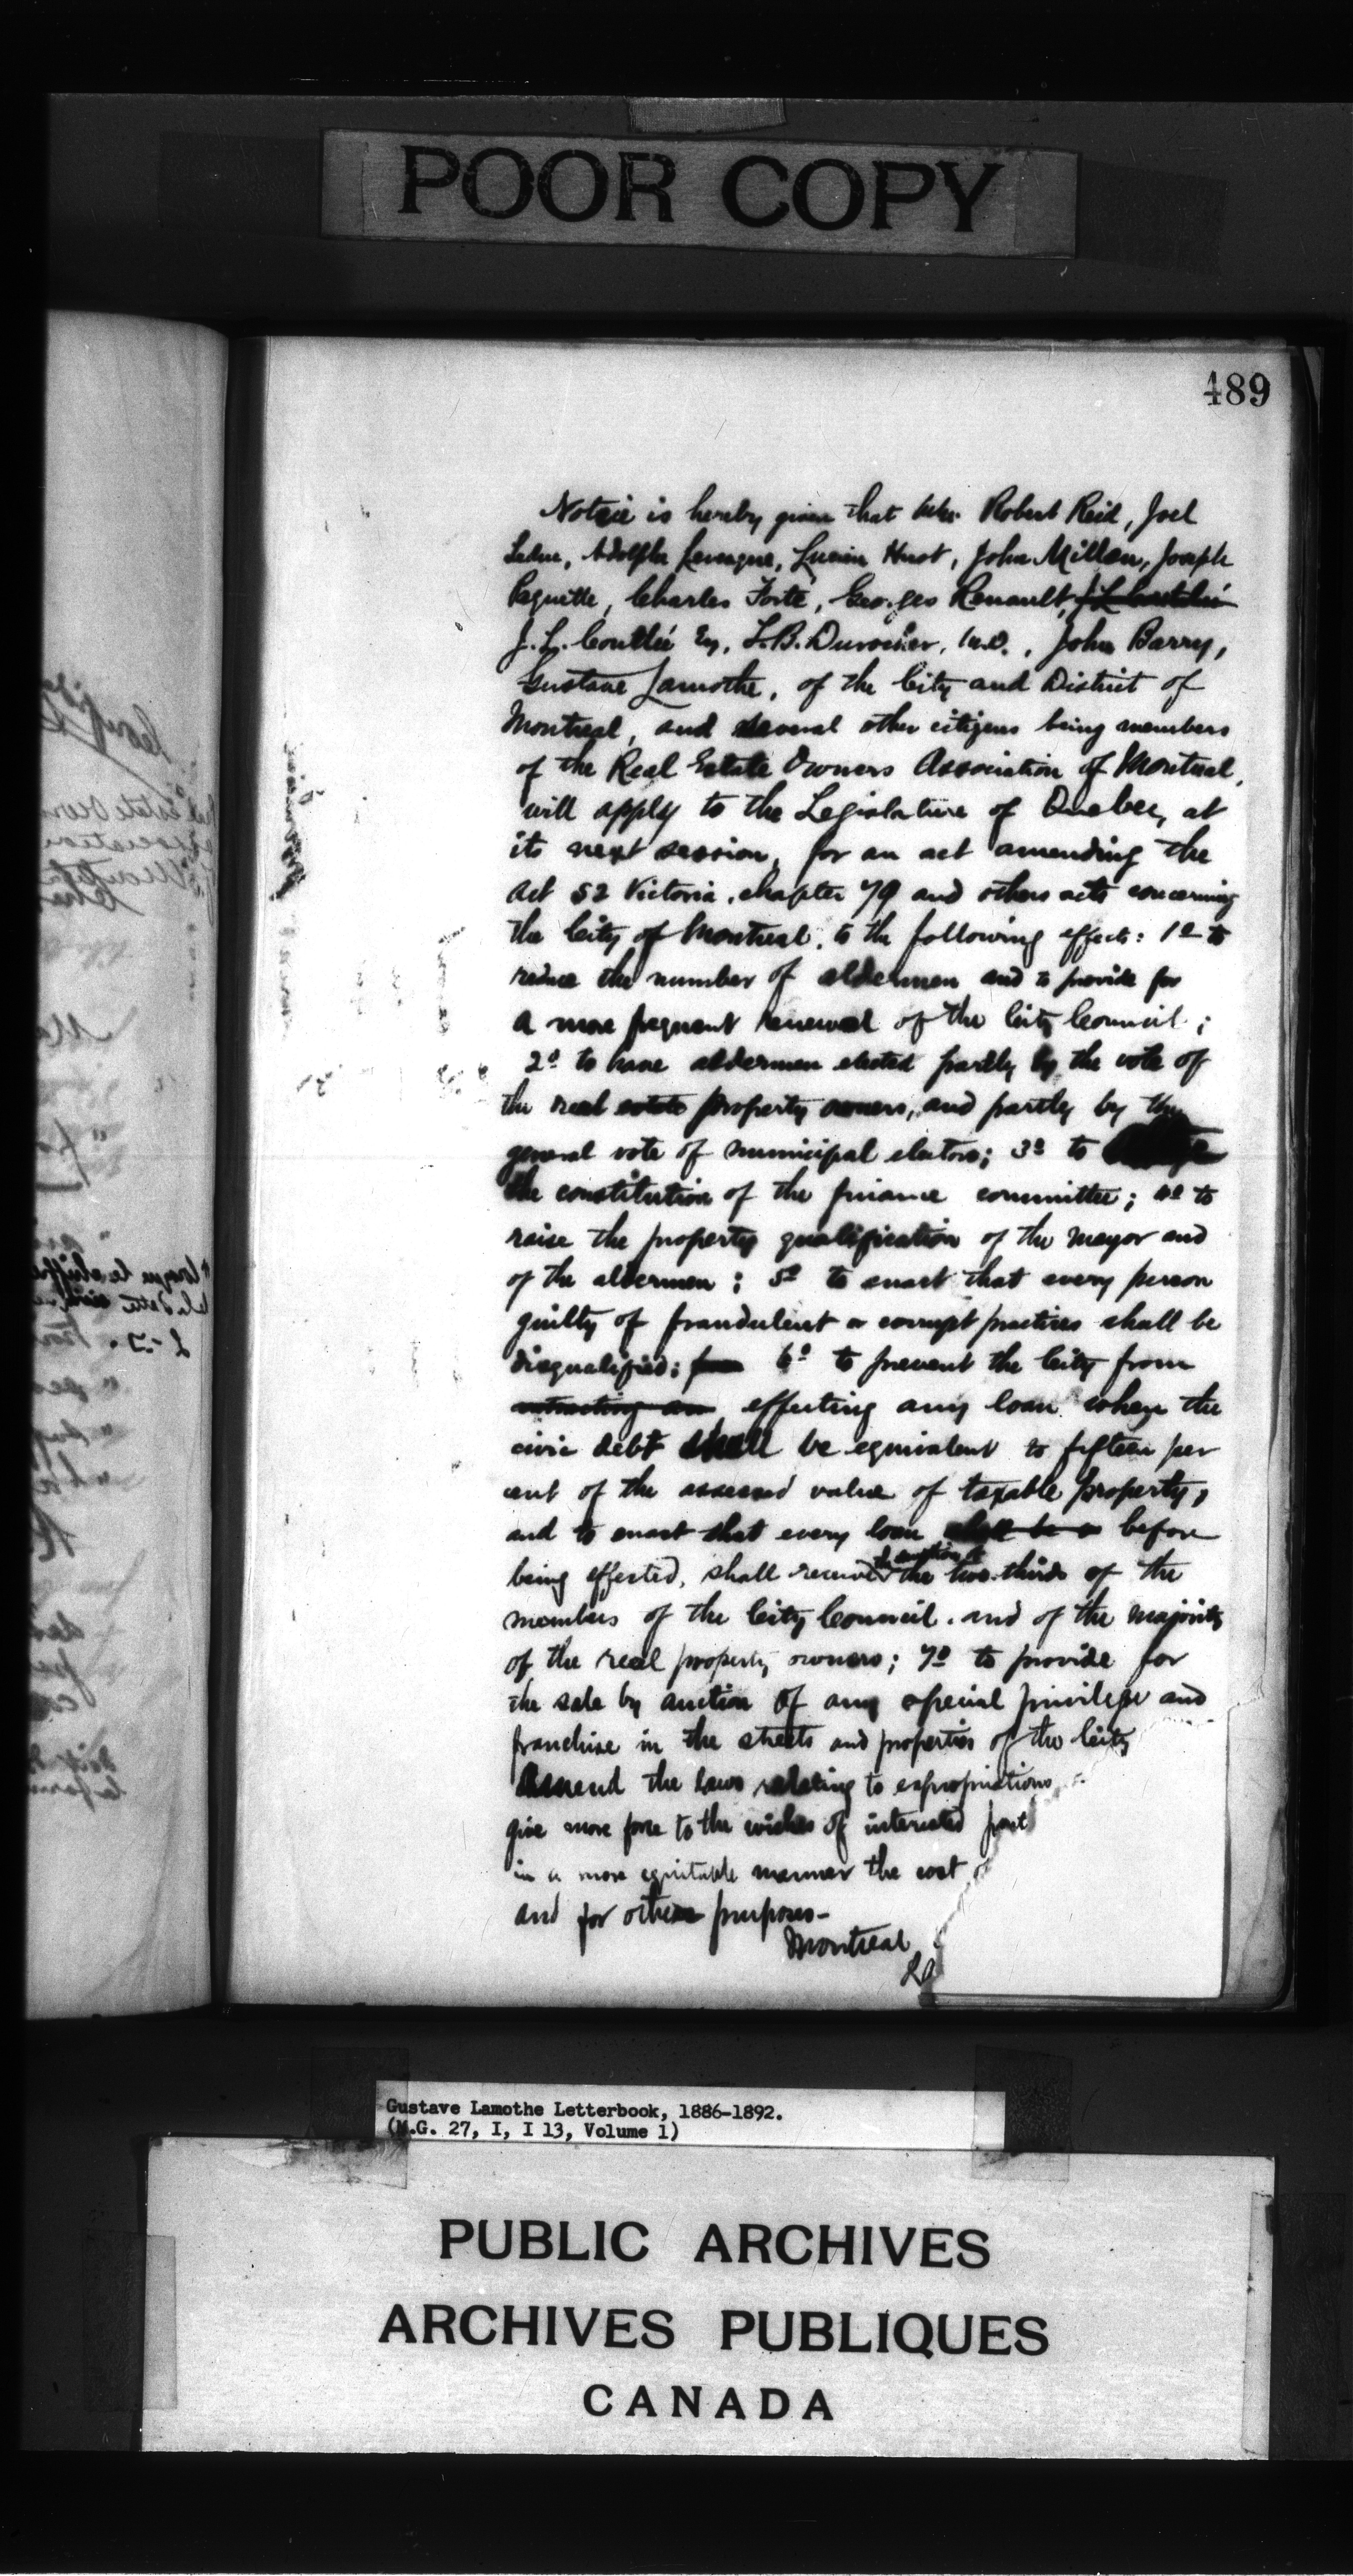 POOR COPY
489
Notice is hereby given that Mm. Robert Reid, Joel
Leduc, Adolphe Lévesque, Lucien Huot, John Millen, Joseph
Paquette, Charles Forté, Georges Renault,
J. L. Coutlée Esq, L. B. Durocher, M.D., John Barry,
Gustave Lamothe, of the City and District of
Montreal, and several other citizens being members
of the Real Estate Owners Association of Montreal,
will apply to the Legislature of Quebec, at
its next session, for an act amending the
act 52 Victoria, chapter 79 and others acts concerning
the City of Montreal, to the following effects: 1º to
reduce the number of aldermen and to provide for
a more frequent renewal of the City Council;
2º to have aldermen elected partly by the vote of
the real estate property owners, and partly by the
general vote of municipal electors; 3º to
the constitution of the finance committee; 4º to
raise the property qualification of the mayor and
of the aldermen; 5º to enact that every person
guilty of fraudulent or corrupt practices shall be
disqualified; 6º to prevent the City from
effecting any loan when the
civic debt shall be equivalent to fifteen per
cent of the assessed value of taxable property,
and to enact that every loan shall be before
being effected, shall receive the sanction of the two-thirds of the
members of the City Council, and of the majority
of the real property owners; 7º to provide for
the sale by auction of any special privilege and
franchise in the streets and properties of the City
amend the laws relating to expropriations
give more force to the wishes of interested part
in a more equitable manner the cost of
and for other purposes-
Montreal
Gustave Lamothe Letterbook, 1886-1892.
(M.G. 27, I, I 13, Volume 1)
PUBLIC ARCHIVES
ARCHIVES PUBLIQUES
CANADA